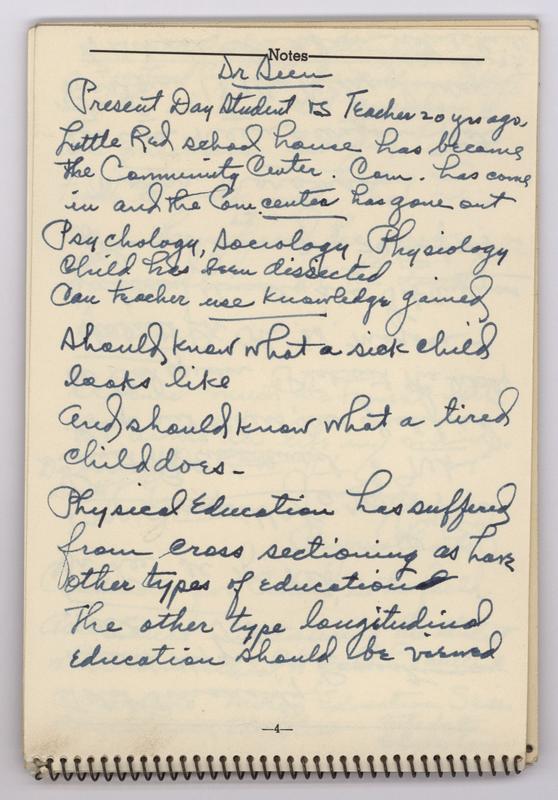 Notes
Dr
Present Day Student vs Teacher 20 yrs ago.
Little Red school house has become
the Community Center. Com. has come
in and the Com. center has gone out
Psychology, Sociology, Physiology
Child has been dissected
Can teacher use knowledge gained
Should know what a sick child
looks like
And should know what a tired
child does -
Physical Education has suffered
from cross sectioning as have
other types of education
The other type longitudinal
Education should be viewed
—4—